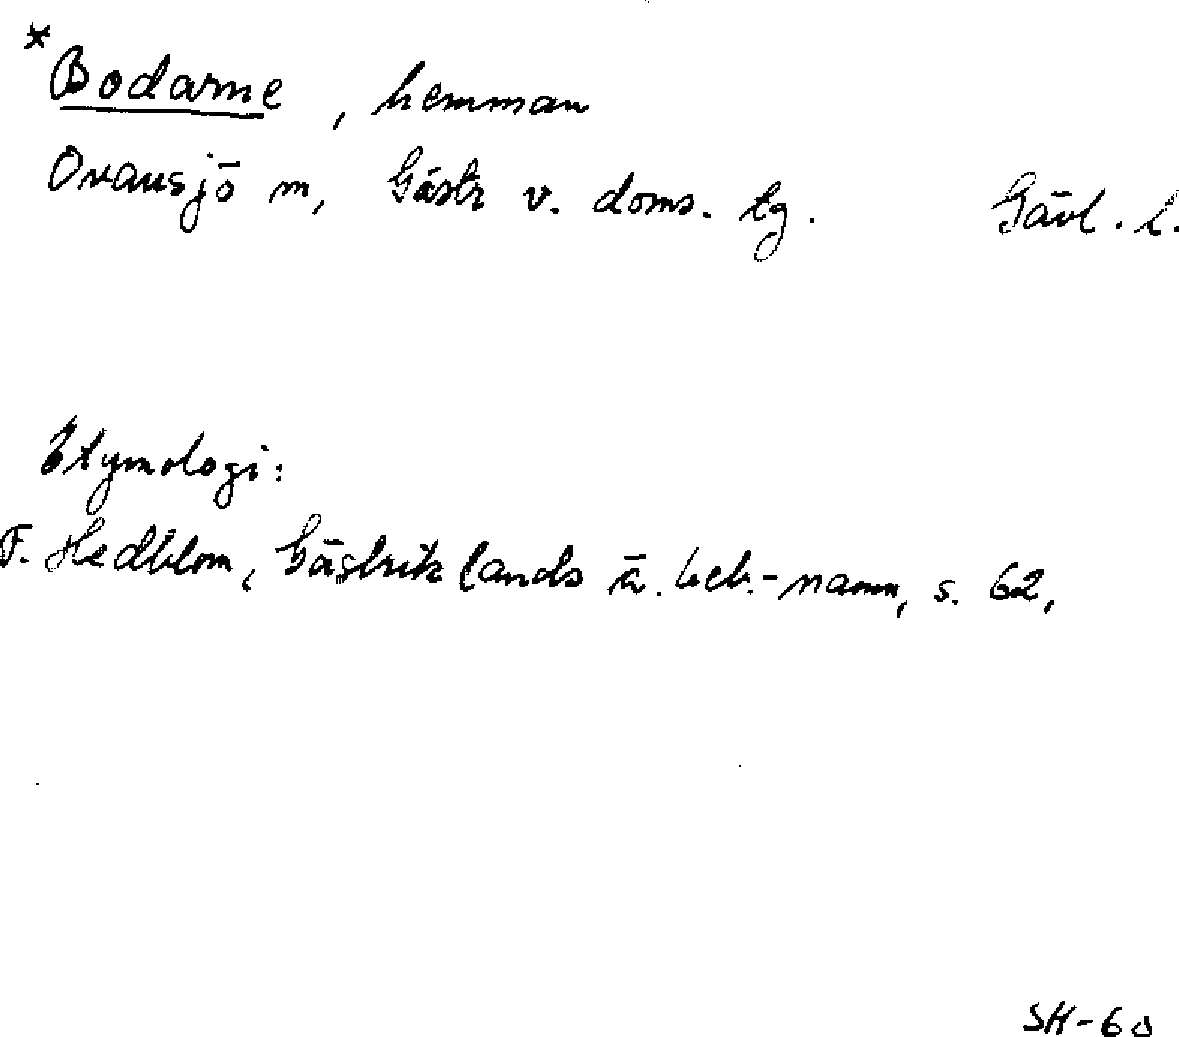 *Bodarne, hemman
Ovansjö m, Gästr v. doms. lg. Gävl. l.
Etymologi:
F. Hedblom, Gästriklands ä. beb.-namn, s. 62,
SH-60